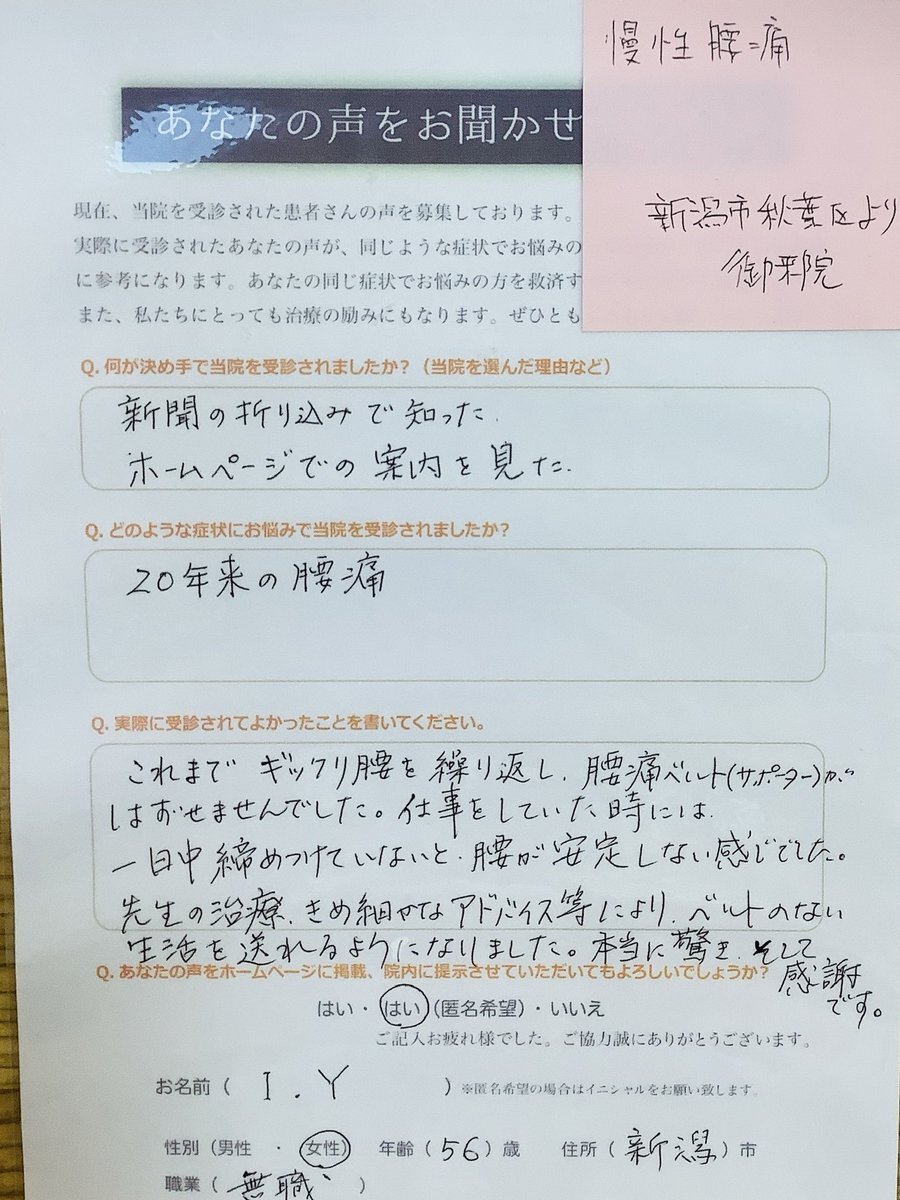 慢性腰痛
新潟市秋葉区より
御来院
あなたの声をお聞かせ
現在、当院を受診された患者さんの声を募集しております。
実際に受診されたあなたの声が、同じような症状でお悩みの
に参考になります。あなたの同じ症状でお悩みの方を救済す
また、私たちにとっても治療の励みにもなります。ぜひとも
Q. 何が決め手で当院を受診されましたか?（当院を選んだ理由など）
新聞の折り込みで知った.
ホームページでの案内を見た.
Q. どのような症状にお悩みで当院を受診されましたか?
20年来の腰痛
Q. 実際に受診されてよかったことを書いてください。
これまでギックリ腰を繰り返し、腰痛ベルト(サポーター)が
はずせませんでした。仕事をしていた時には
一日中締めつけていないと、腰が安定しない感じでした。
先生の治療、きめ細かなアドバイス等により、ベルトのない
生活を送れるようになりました。本当に驚き、そして
感謝
です。
Q. あなたの声をホームページに掲載、院内に提示させていただいてもよろしいでしょうか?
はい・はい(匿名希望)・いいえ
ご記入お疲れ様でした。ご協力誠にありがとうございます。
お名前 ( I.Y ) ※匿名希望の場合はイニシャルをお願い致します。
性別 (男性 ・ 女性) 年齢 ( 56 ) 歳 住所 ( 新潟 ) 市
職業 ( 無職 )